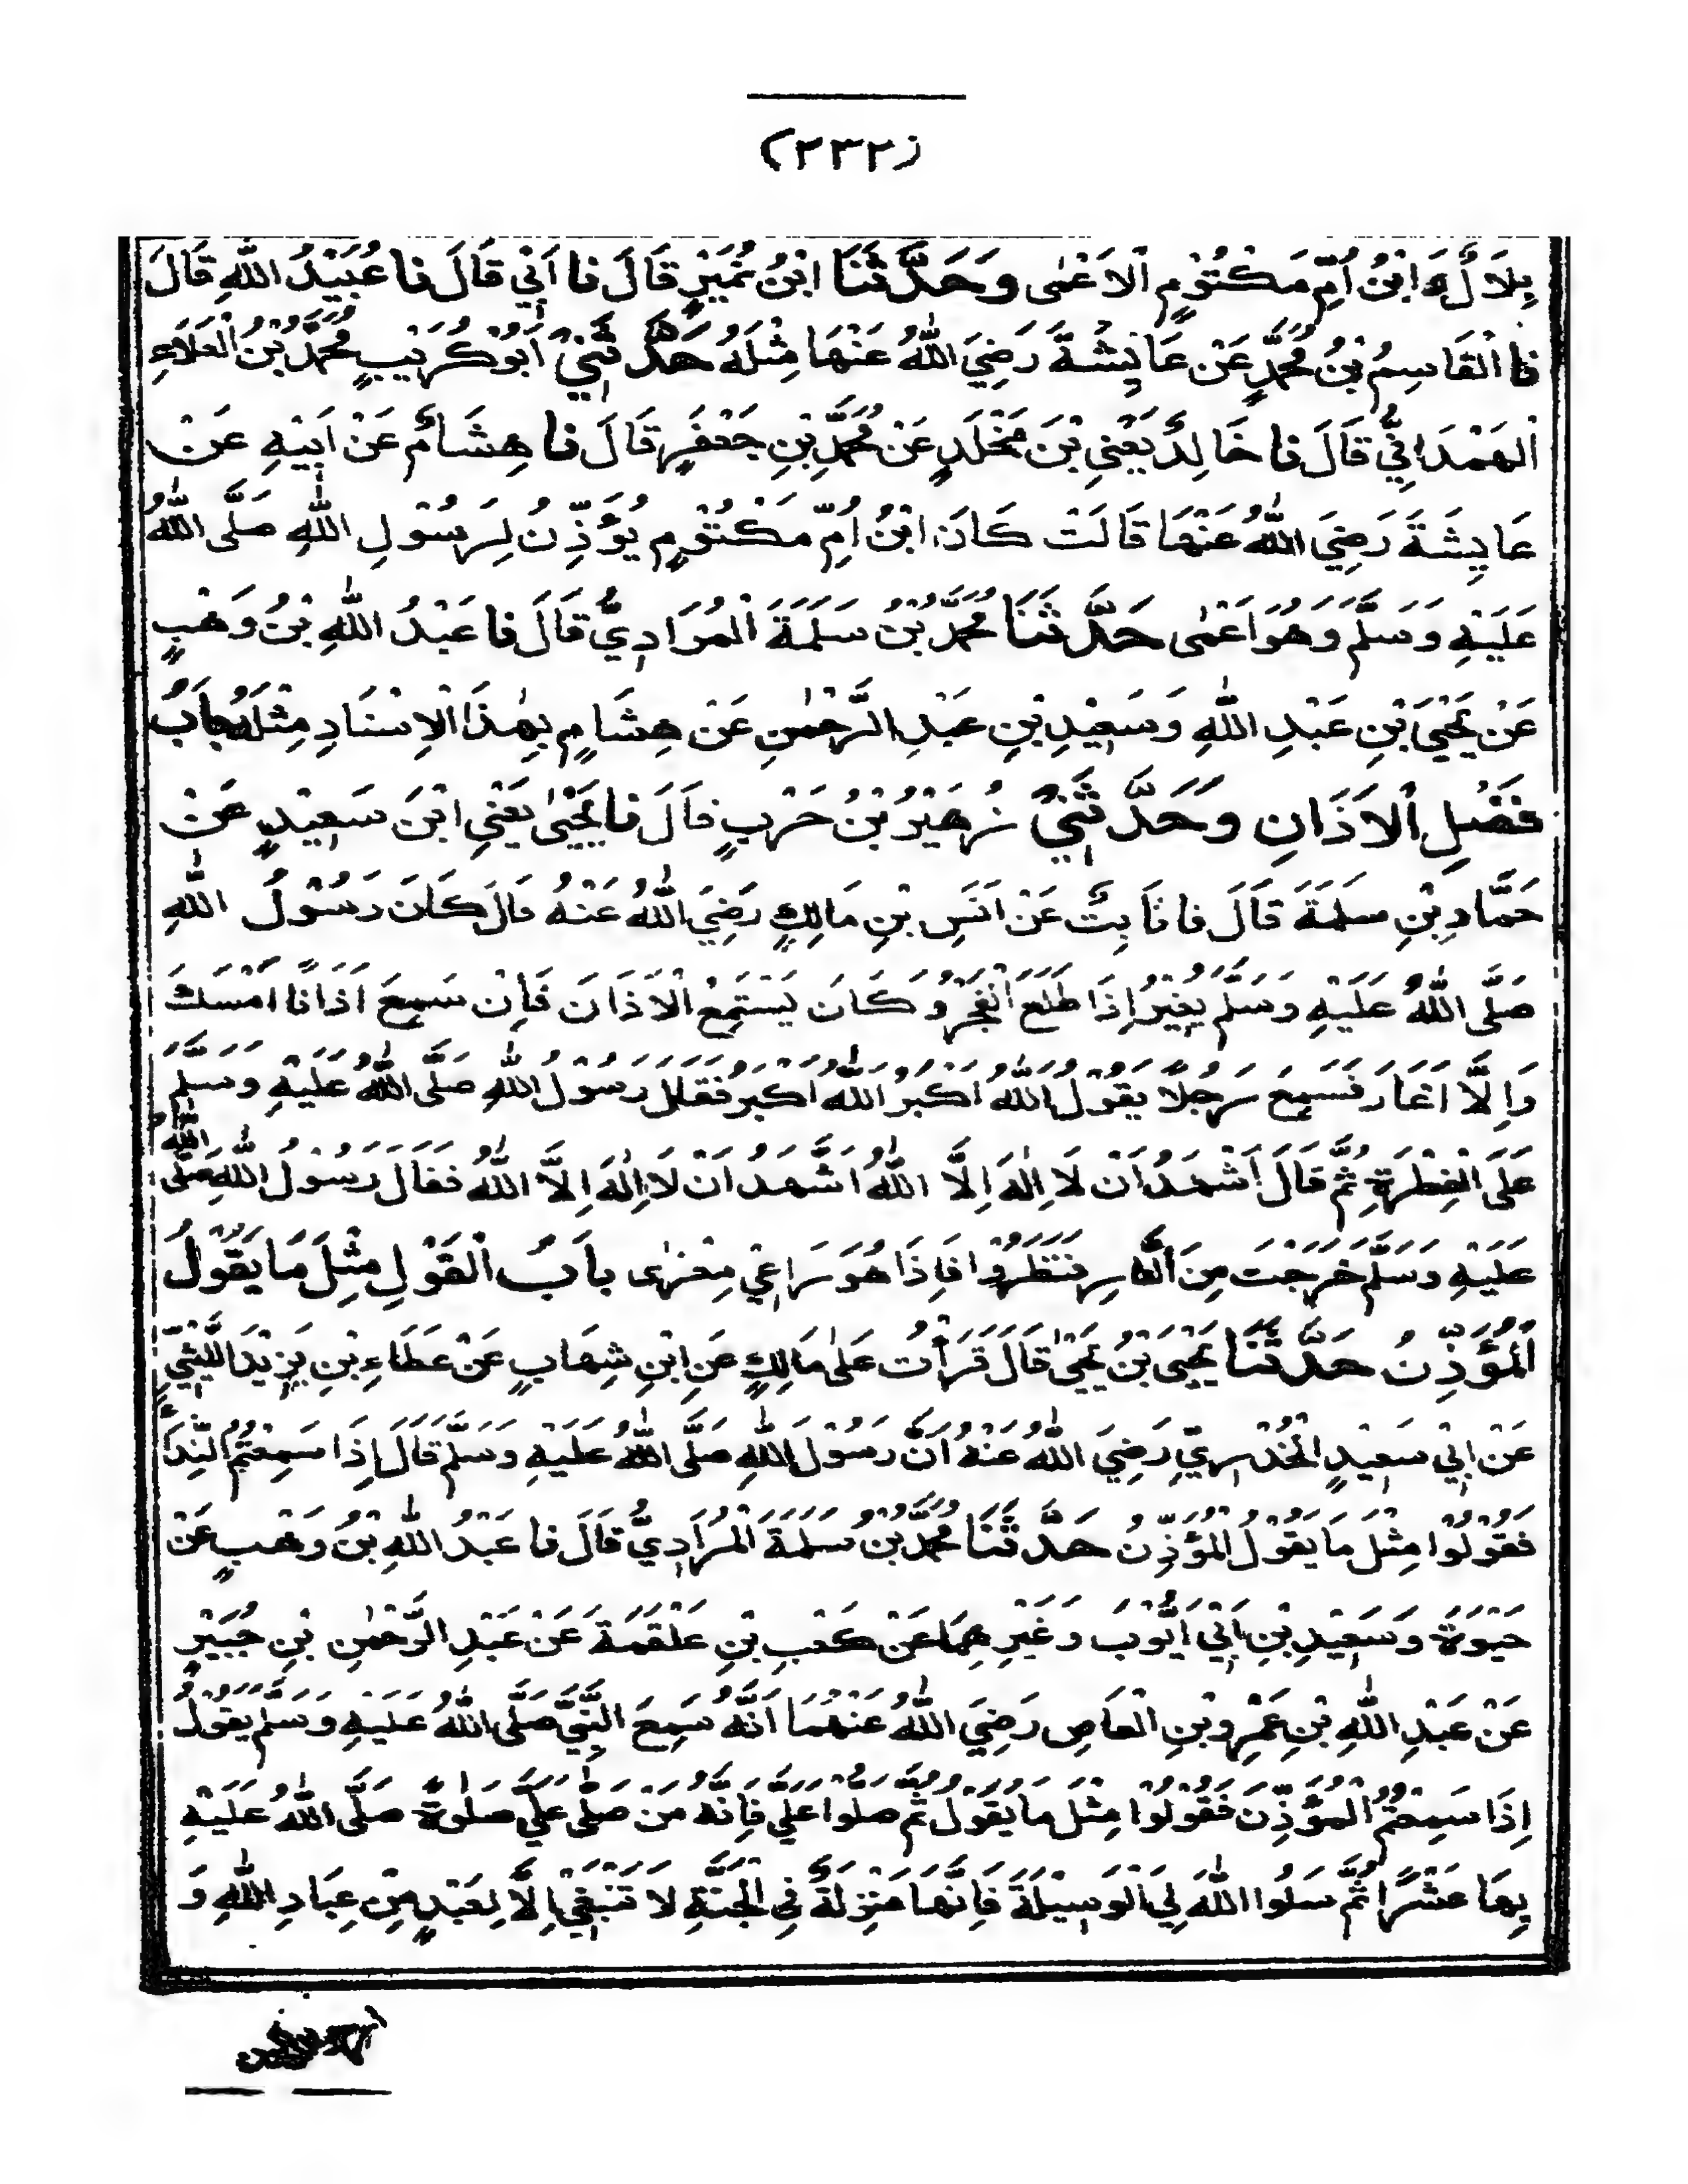 (٢٣٢)
بِلَالٌ وَابْنُ اُمِّ مَكْتُوْمٍ الْاَعْمٰى وَحَدَّثَنَا ابْنُ نُمَيْرٍ قَالَ نا اَبِيْ قَالَ نا عُبَيْدُ اللّٰهِ قَالَ
نا الْقَاسِمُ بْنُ مُحَمَّدٍ عَنْ عَايِشَةَ رَضِيَ اللّٰهُ عَنْهَا مِثْلَهُ حَدَّثَنِيْ اَبُوْكُرَيْبٍ مُحَمَّدُ بْنُ الْعَلَاءِ
الْهَمْدَانِيُّ قَالَ نا خَالِدٌ يَعْنِي بْنَ مَخْلَدٍ عَنْ مُحَمَّدِ بْنِ جَعْفَرٍ قَالَ نا هِشَامٌ عَنْ اَبِيْهِ عَنْ
عَايِشَةَ رَضِيَ اللّٰهُ عَنْهَا قَالَتْ كَانَ ابْنُ اُمِّ مَكْتُوْمٍ يُؤَذِّنُ لِرَسُوْلِ اللّٰهِ صَلَّى اللّٰهُ
عَلَيْهِ وَسَلَّمَ وَهُوَ اَعْمٰى حَدَّثَنَا مُحَمَّدُ بْنُ سَلَمَةَ الْمُرَادِيُّ قَالَ نا عَبْدُ اللّٰهِ بْنُ وَهْبٍ
عَنْ يَحْيَى بْنِ عَبْدِ اللّٰهِ وَسَعِيْدِ بْنِ عَبْدِ الرَّحْمٰنِ عَنْ هِشَامٍ بِهٰذَا الْاِسْنَادِ مِثْلَهُ بَابُ
فَضْلِ الْاَذَانِ وَحَدَّثَنِيْ زُهَيْرُ بْنُ حَرْبٍ قَالَ نا يَحْيٰى يَعْنِي ابْنَ سَعِيْدٍ عَنْ
حَمَّادِ بْنِ سَلَمَةَ قَالَ نا ثَابِتٌ عَنْ اَنَسِ بْنِ مَالِكٍ رَضِيَ اللّٰهُ عَنْهُ قَالَ كَانَ رَسُوْلُ اللّٰهِ
صَلَّى اللّٰهُ عَلَيْهِ وَسَلَّمَ يُغِيْرُ اِذَا طَلَعَ الْفَجْرُ وَكَانَ يَسْتَمِعُ الْاَذَانَ فَاِنْ سَمِعَ اَذَانًا اَمْسَكَ
وَاِلَّا اَغَارَ فَسَمِعَ رَجُلًا يَقُوْلُ اللّٰهُ اَكْبَرُ اللّٰهُ اَكْبَرُ فَقَالَ رَسُوْلُ اللّٰهِ صَلَّى اللّٰهُ عَلَيْهِ وَسَلَّمَ
عَلَى الْفِطْرَةِ ثُمَّ قَالَ اَشْهَدُ اَنْ لَا اِلٰهَ اِلَّا اللّٰهُ اَشْهَدُ اَنْ لَا اِلٰهَ اِلَّا اللّٰهُ فَقَالَ رَسُوْلُ اللّٰهِ صَلَّى اللّٰهُ
عَلَيْهِ وَسَلَّمَ خَرَجْتَ مِنَ النَّارِ فَنَظَرُوْا فَاِذَا هُوَ رَاعِيْ مِعْزٰى بَابُ الْقَوْلِ مِثْلَ مَا يَقُوْلُ
الْمُؤَذِّنُ حَدَّثَنَا يَحْيَى بْنُ يَحْيٰى قَالَ قَرَأْتُ عَلٰى مَالِكٍ عَنِ ابْنِ شِهَابٍ عَنْ عَطَاءِ بْنِ يَزِيْدَ اللَّيْثِيِّ
عَنْ اَبِيْ سَعِيْدٍ الْخُدْرِيِّ رَضِيَ اللّٰهُ عَنْهُ اَنَّ رَسُوْلَ اللّٰهِ صَلَّى اللّٰهُ عَلَيْهِ وَسَلَّمَ قَالَ اِذَا سَمِعْتُمُ النِّدَاءَ
فَقُوْلُوْا مِثْلَ مَا يَقُوْلُ الْمُؤَذِّنُ حَدَّثَنَا مُحَمَّدُ بْنُ سَلَمَةَ الْمُرَادِيُّ قَالَ نا عَبْدُ اللّٰهِ بْنُ وَهْبٍ عَنْ
حَيْوَةَ وَسَعِيْدِ بْنِ اَبِيْ اَيُّوْبَ وَغَيْرِ هِمَا عَنْ كَعْبِ بْنِ عَلْقَمَةَ عَنْ عَبْدِ الرَّحْمٰنِ بْنِ جُبَيْرٍ
عَنْ عَبْدِ اللّٰهِ بْنِ عَمْرِو بْنِ الْعَاصِ رَضِيَ اللّٰهُ عَنْهُمَا اَنَّهُ سَمِعَ النَّبِيَّ صَلَّى اللّٰهُ عَلَيْهِ وَسَلَّمَ يَقُوْلُ
اِذَا سَمِعْتُمُ الْمُؤَذِّنَ فَقُوْلُوْا مِثْلَ مَا يَقُوْلُ ثُمَّ صَلُّوْا عَلَيَّ فَاِنَّهُ مَنْ صَلّٰى عَلَيَّ صَلٰوةً صَلَّى اللّٰهُ عَلَيْهِ
بِهَا عَشْرًا ثُمَّ سَلُوا اللّٰهَ لِيَ الْوَسِيْلَةَ فَاِنَّهَا مَنْزِلَةٌ فِي الْجَنَّةِ لَا تَنْبَغِيْ اِلَّا لِعَبْدٍ مِنْ عِبَادِ اللّٰهِ وَ